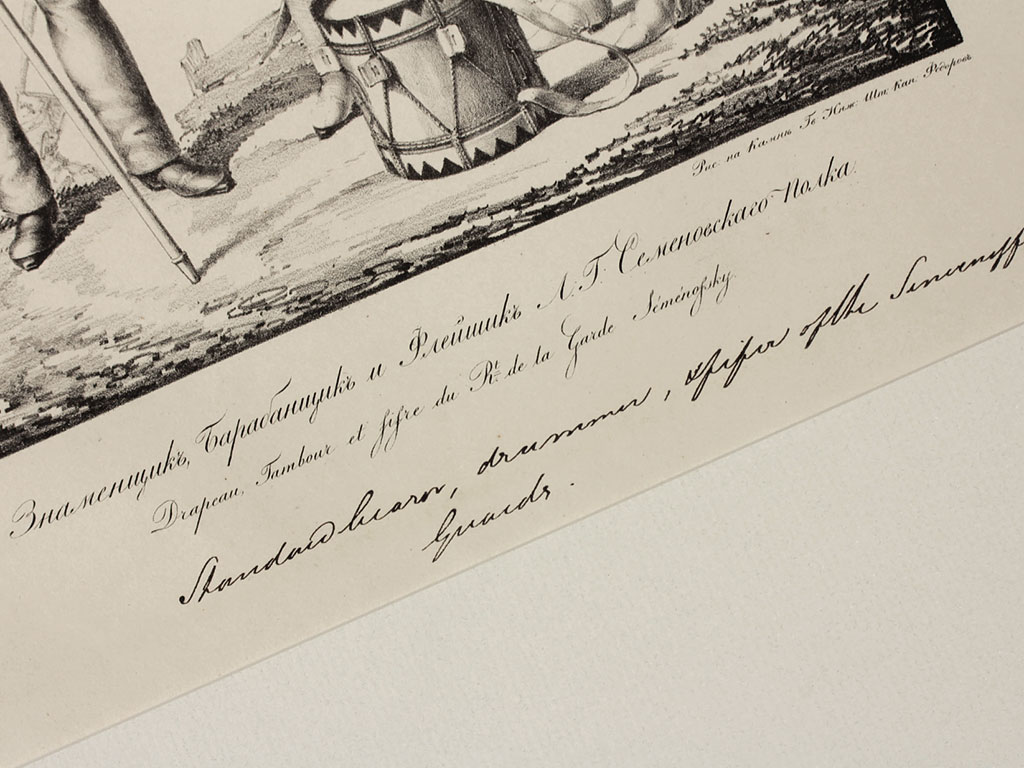 Рис. на Камнѣ Гв. Инж. Шт. Кап. Ѳедоровъ
Знаменщикъ, Барабанщикъ и Флейщикъ Л. Г. Семеновскаго Полка.
Drapeau, Tambour et fifre du Rt. de la Garde Séménofsky.
Standard bearer, drummer, & fifer of the
Guards.